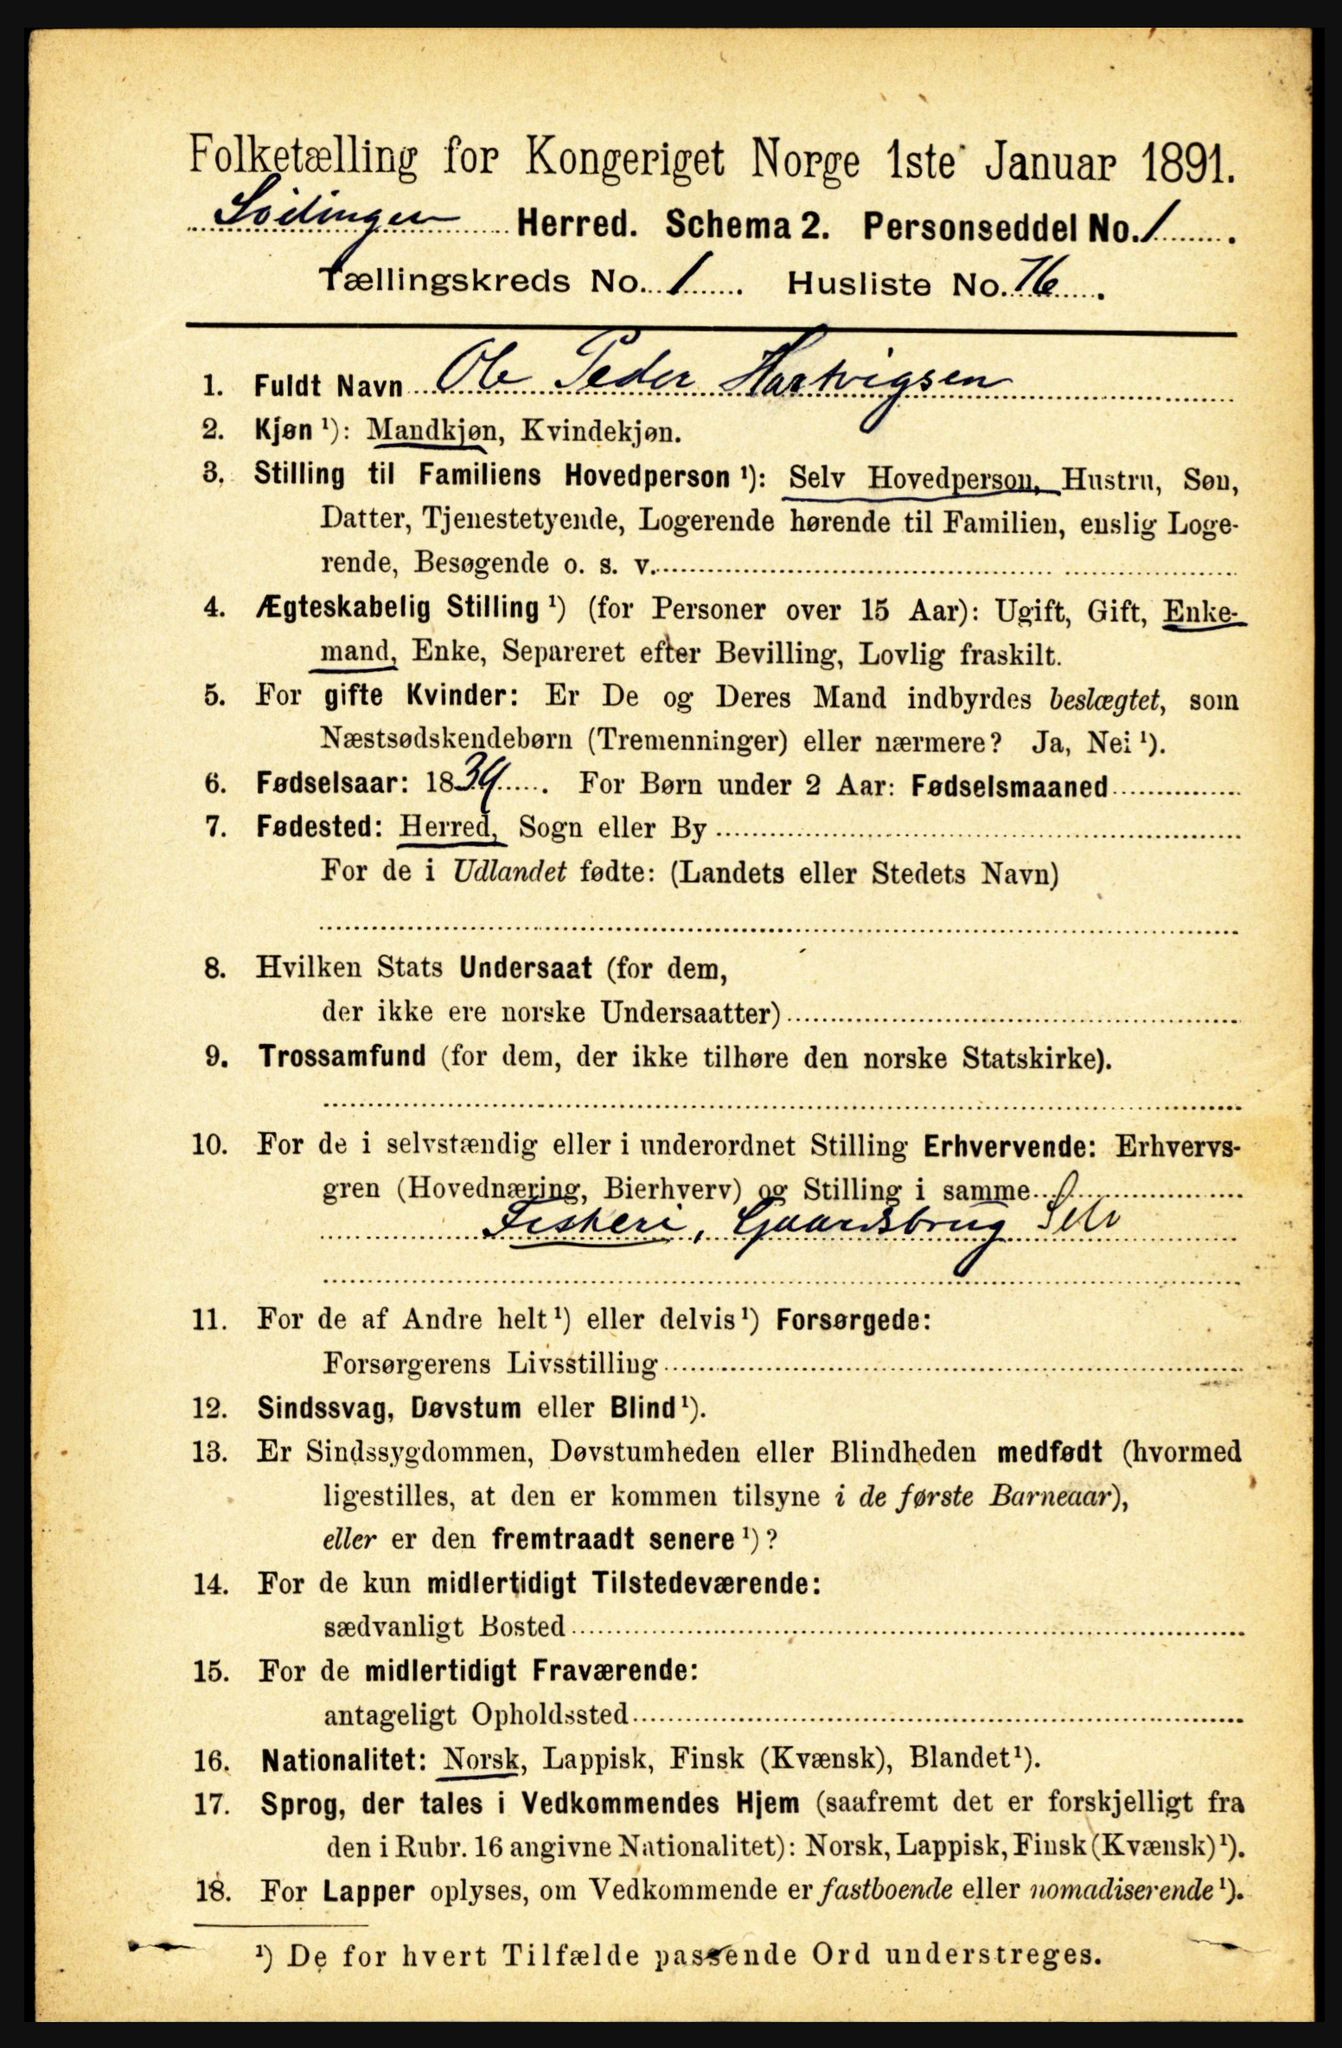 Folketælling for Kongeriget Norge 1ste Januar 1891.
Lødingen Herred. Schema 2. Personseddel No. 1.
Tællingskreds No. 1. Husliste No. 76.
1. Fuldt Navn Ole Peder Hartvigsen
2. Kjøn ¹): Mandkjøn, Kvindekjøn.
3. Stilling til Familiens Hovedperson ¹): Selv Hovedperson, Hustru, Søn,
Datter, Tjenestetyende, Logerende hørende til Familien, enslig Loge-
rende, Besøgende o. s. v.
4. Ægteskabelig Stilling ¹) (for Personer over 15 Aar): Ugift, Gift, Enke-
mand, Enke, Separeret efter Bevilling, Lovlig fraskilt.
5. For gifte Kvinder: Er De og Deres Mand indbyrdes beslægtet, som
Næstsødskendebørn (Tremenninger) eller nærmere? Ja, Nei ¹).
6. Fødselsaar: 1839. For Børn under 2 Aar: Fødselsmaaned
7. Fødested: Herred, Sogn eller By
For de i Udlandet fødte: (Landets eller Stedets Navn)
8. Hvilken Stats Undersaat (for dem,
der ikke ere norske Undersaatter)
9. Trossamfund (for dem, der ikke tilhøre den norske Statskirke).
10. For de i selvstændig eller i underordnet Stilling Erhvervende: Erhvervs-
gren (Hovednæring, Bierhverv) og Stilling i samme
Fiskeri, Gaardsbrug Selv
11. For de af Andre helt ¹) eller delvis ¹) Forsørgede:
Forsørgerens Livsstilling
12. Sindssvag, Døvstum eller Blind ¹).
13. Er Sindssygdommen, Døvstumheden eller Blindheden medfødt (hvormed
ligestilles, at den er kommen tilsyne i de første Barneaar),
eller er den fremtraadt senere ¹)?
14. For de kun midlertidigt Tilstedeværende:
sædvanligt Bosted
15. For de midlertidigt Fraværende:
antageligt Opholdssted
16. Nationalitet: Norsk, Lappisk, Finsk (Kvænsk), Blandet ¹).
17. Sprog, der tales i Vedkommendes Hjem (saafremt det er forskjelligt fra
den i Rubr. 16 angivne Nationalitet): Norsk, Lappisk, Finsk (Kvænsk) ¹).
18. For Lapper oplyses, om Vedkommende er fastboende eller nomadiserende ¹).
¹) De for hvert Tilfælde passende Ord understreges.